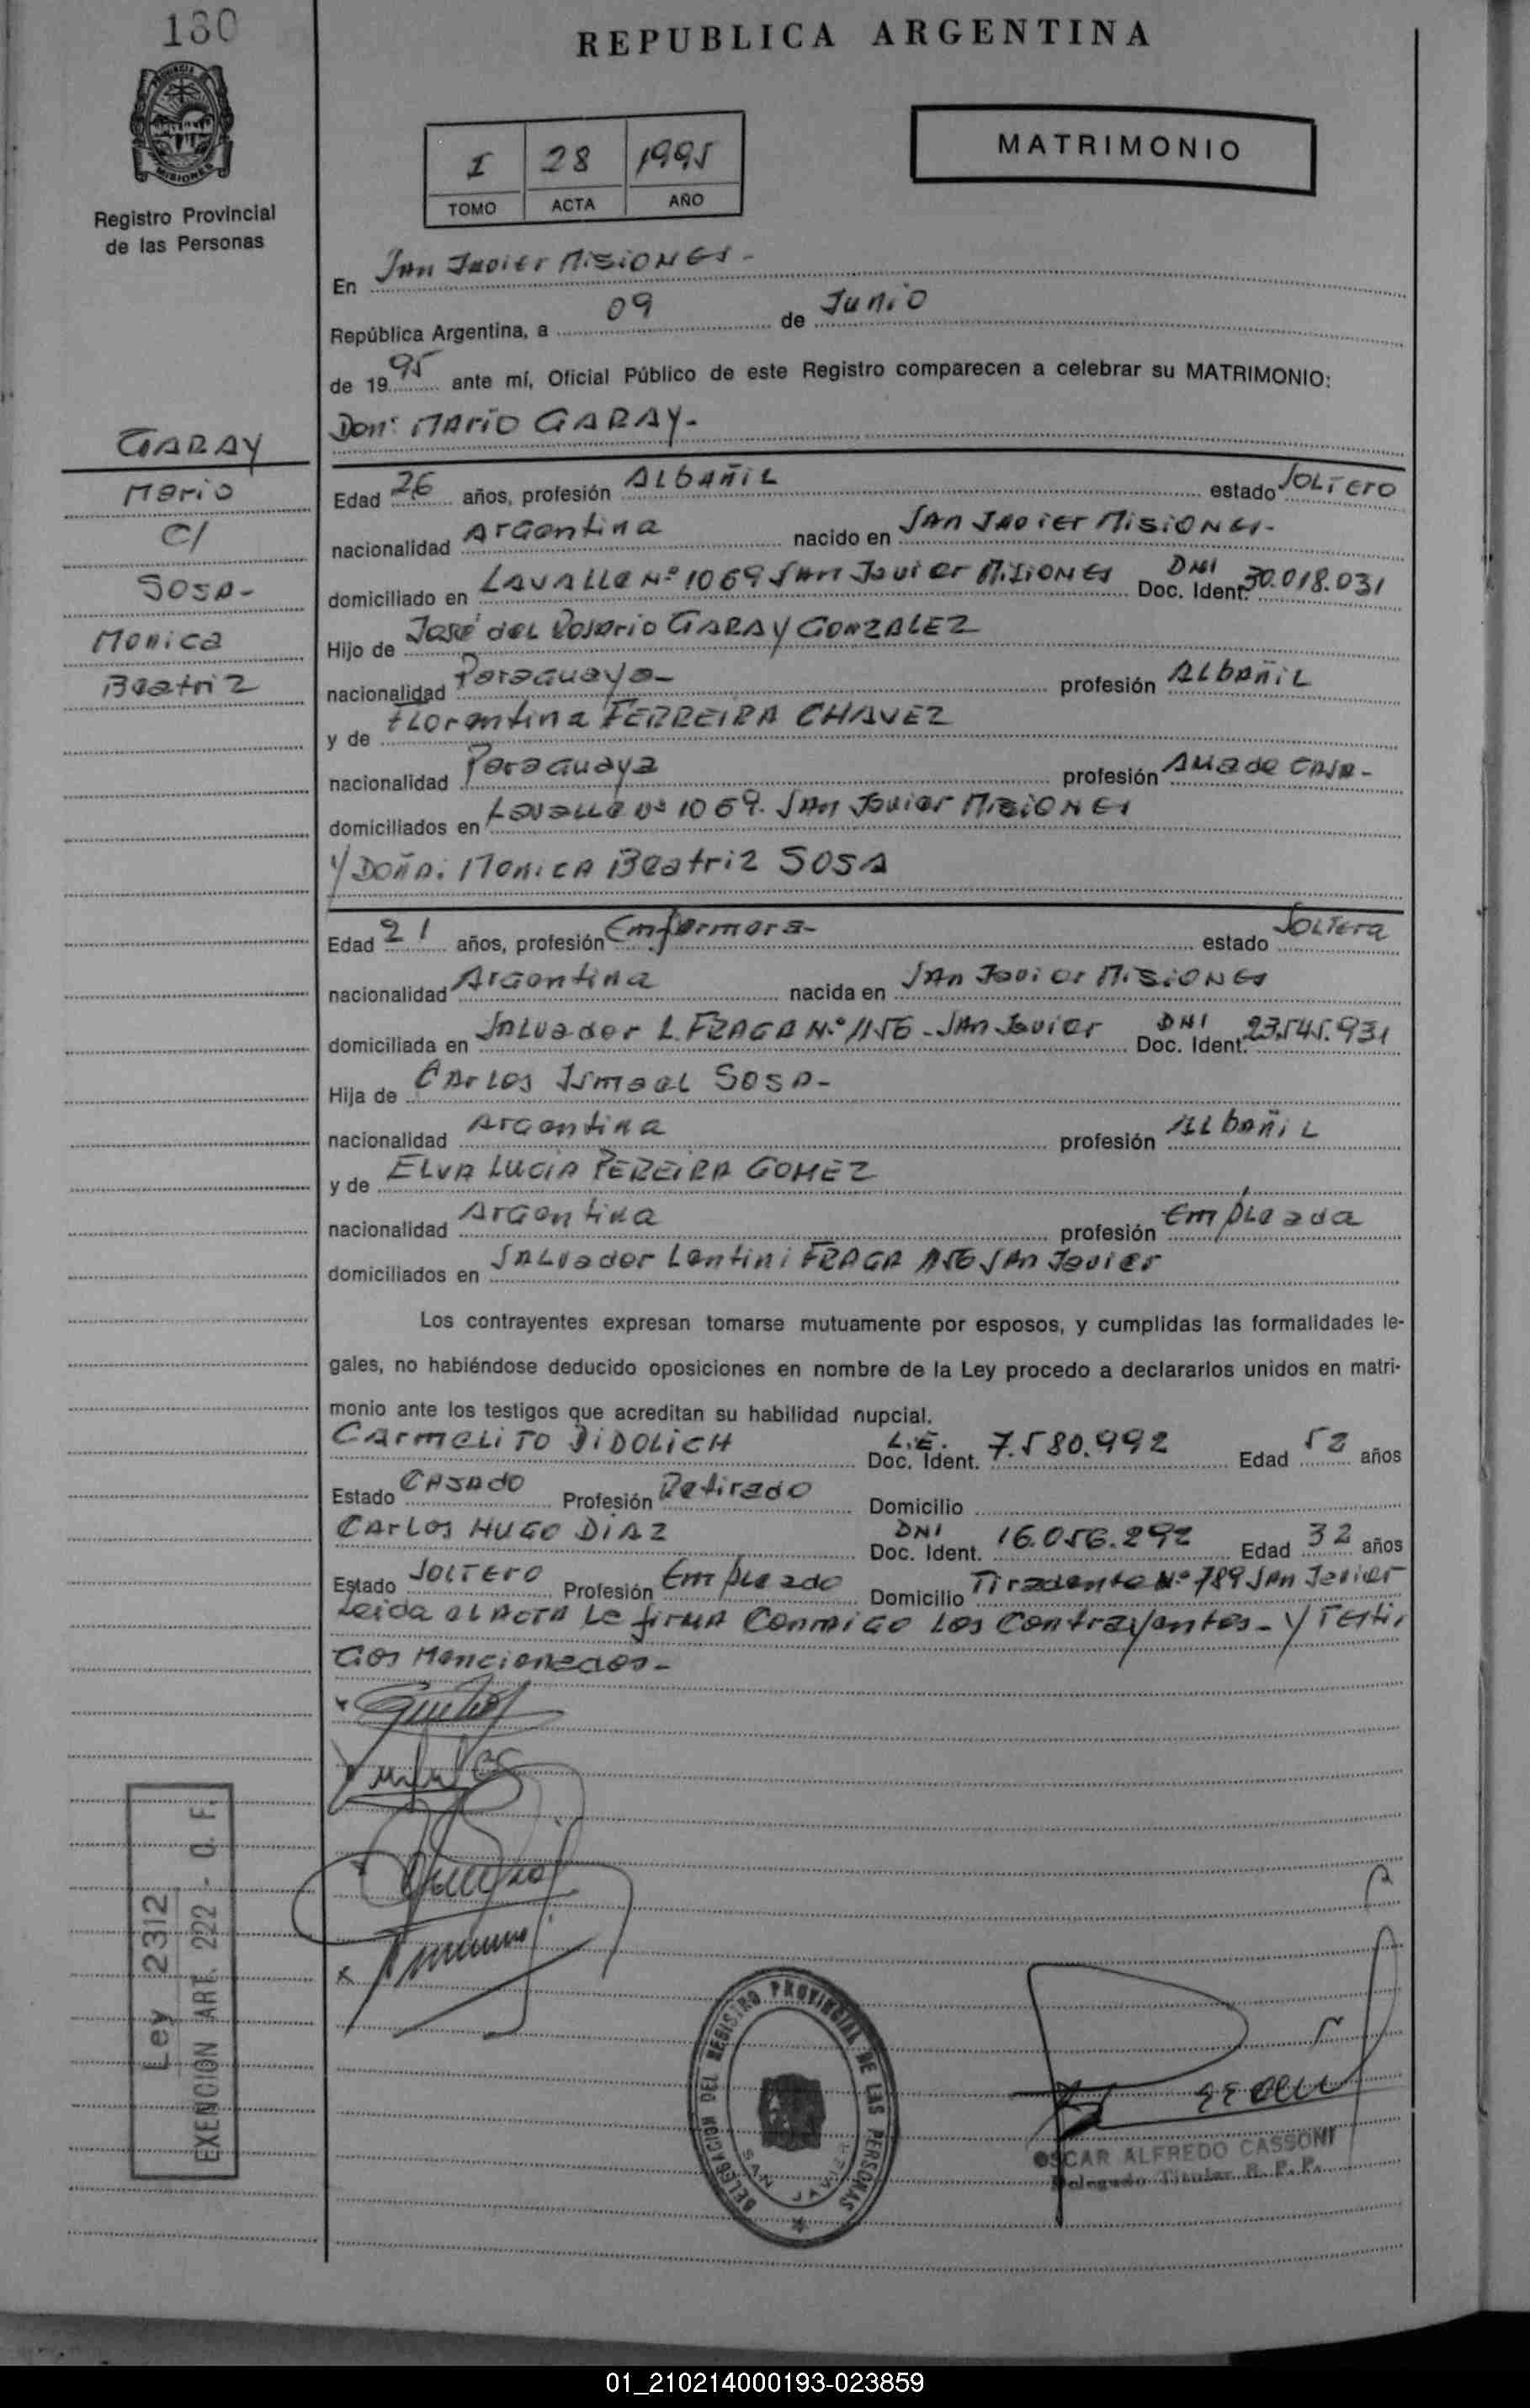 180
REPUBLICA ARGENTINA
MISIONES
Registro Provincial
de las Personas
I 28 1995
TOMO ACTA AÑO
MATRIMONIO
En San Javier Misiones -
República Argentina, a 09 de Junio
de 1995 ante mí, Oficial Público de este Registro comparecen a celebrar su MATRIMONIO:
Don: Mario GARAY.-
GARAY
Mario
C/
SOSA-
Monica
Beatriz
Edad 26 años, profesión Albañil estado SOLTERO
nacionalidad Argentina nacido en San Javier Misiones.-
domiciliado en Lavalle Nº 1069 San Javier Misiones Doc. Ident. DNI 30.018.031
Hijo de José del Rosario GARAY GONZALEZ
nacionalidad Paraguaya- profesión Albañil
y de Florentina FERREIRA CHAVEZ
nacionalidad Paraguaya profesión Ama de casa-
domiciliados en Lavalle nº 1069. San Javier Misiones
Y DOÑA: Monica Beatriz SOSA
Edad 21 años, profesión Enfermera- estado Soltera
nacionalidad Argentina nacida en San Javier Misiones
domiciliada en Salvador L. FRAGA N.º 1156 - San Javier Doc. Ident. DNI 23.545.931
Hija de Carlos Ismael SOSA-
nacionalidad Argentina profesión Albañil
y de ELVA LUCIA PEREIRA GOMEZ
nacionalidad Argentina profesión Empleada
domiciliados en Salvador Lentini FRAGA 1156 San Javier
Los contrayentes expresan tomarse mutuamente por esposos, y cumplidas las formalidades le-
gales, no habiéndose deducido oposiciones en nombre de la Ley procedo a declararlos unidos en matri-
monio ante los testigos que acreditan su habilidad nupcial.
CARMELITO DIDOLICH Doc. Ident. L.E. 7.580.992 Edad 52 años
Estado CASADO Profesión Retirado Domicilio
CARLOS HUGO DIAZ Doc. Ident. DNI 16.056.292 Edad 32 años
Estado SOLTERO Profesión Empleado Domicilio Tiradente Nº 789 San Javier
Leida el ACTA Le firma Conmigo Los Contrayentes - y Testi,
Gos Mencionados-
Ley 2312
EXENCION ART. 222 - O. F.
DELEGACION DEL REGISTRO PROVINCIAL DE LAS PERSONAS
SAN JAVIER
OSCAR ALFREDO CASSONI
Delegado Titular R. P. P.
01_210214000193-023859